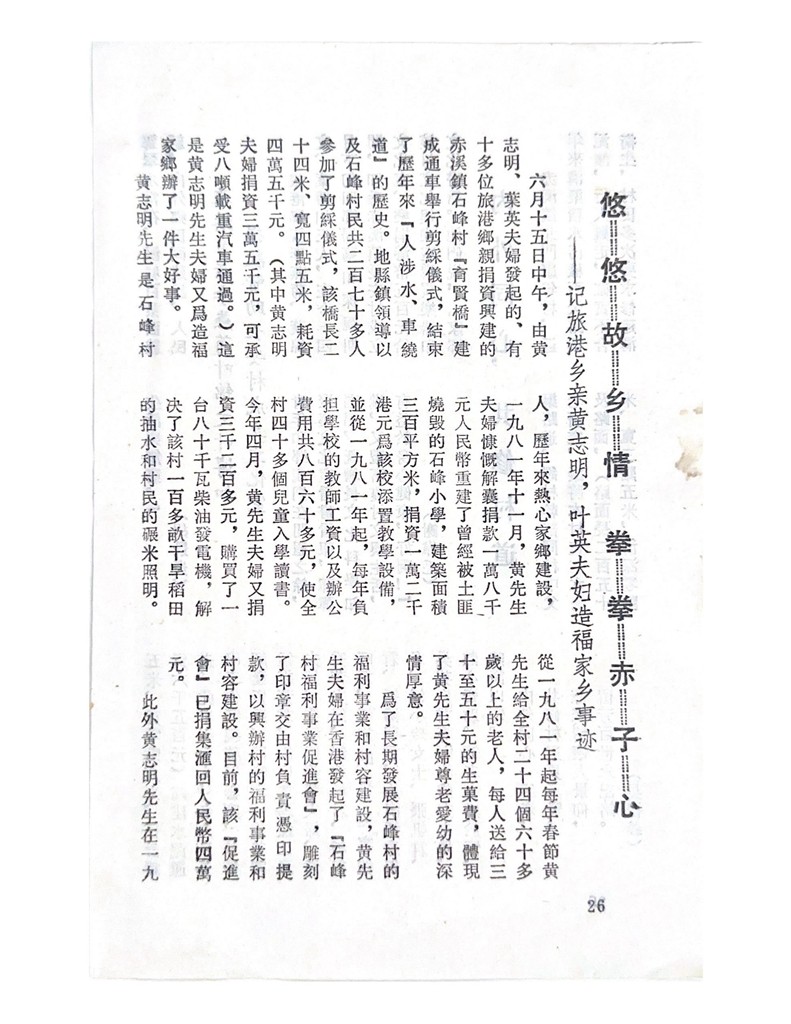 悠悠故乡情 拳拳赤子心
——记旅港乡亲黄志明，叶英夫妇造福家乡事迹
六月十五日中午，由黄
志明、葉英夫婦發起的、有
十多位旅港鄉親捐資興建的
赤溪鎮石峰村『育賢橋』建
成通車舉行剪綵儀式，結束
了歷年來『人涉水、車繞
道』的歷史。地縣鎮領導以
及石峰村民共二百七十多人
參加了剪綵儀式，該橋長二
十四米、寬四點五米，耗資
四萬五千元。（其中黄志明
夫婦捐資三萬五千元，可承
受八噸載重汽車通過。）這
是黄志明先生夫婦又爲造福
家鄉辦了一件大好事。
黄志明先生是石峰村
人，歷年來熱心家鄉建設，
一九八一年十一月，黄先生
夫婦慷慨解囊捐款一萬八千
元人民幣重建了曾經被土匪
燒毁的石峰小學，建築面積
三百平方米，捐資一萬二千
港元爲該校添置教學設備，
並從一九八一年起，每年負
担學校的教師工資以及辦公
費用共八百六十多元，使全
村四十多個兒童入學讀書。
今年四月，黄先生夫婦又捐
資三千二百多元，購買了一
台八十千瓦柴油發電機，解
决了該村一百多畝干旱稻田
的抽水和村民的碾米照明。
從一九八一年起每年春節黄
先生給全村二十四個六十多
歲以上的老人，每人送給三
十至五十元的生菓費，體現
了黄先生夫婦尊老愛幼的深
情厚意。
爲了長期發展石峰村的
福利事業和村容建設，黄先
生夫婦在香港發起了『石峰
村福利事業促進會』，雕刻
了印章交由村負責憑印提
款，以興辦村的福利事業和
村容建設。目前，該『促進
會』已捐集滙回人民幣四萬
元。
此外黄志明先生在一九
26